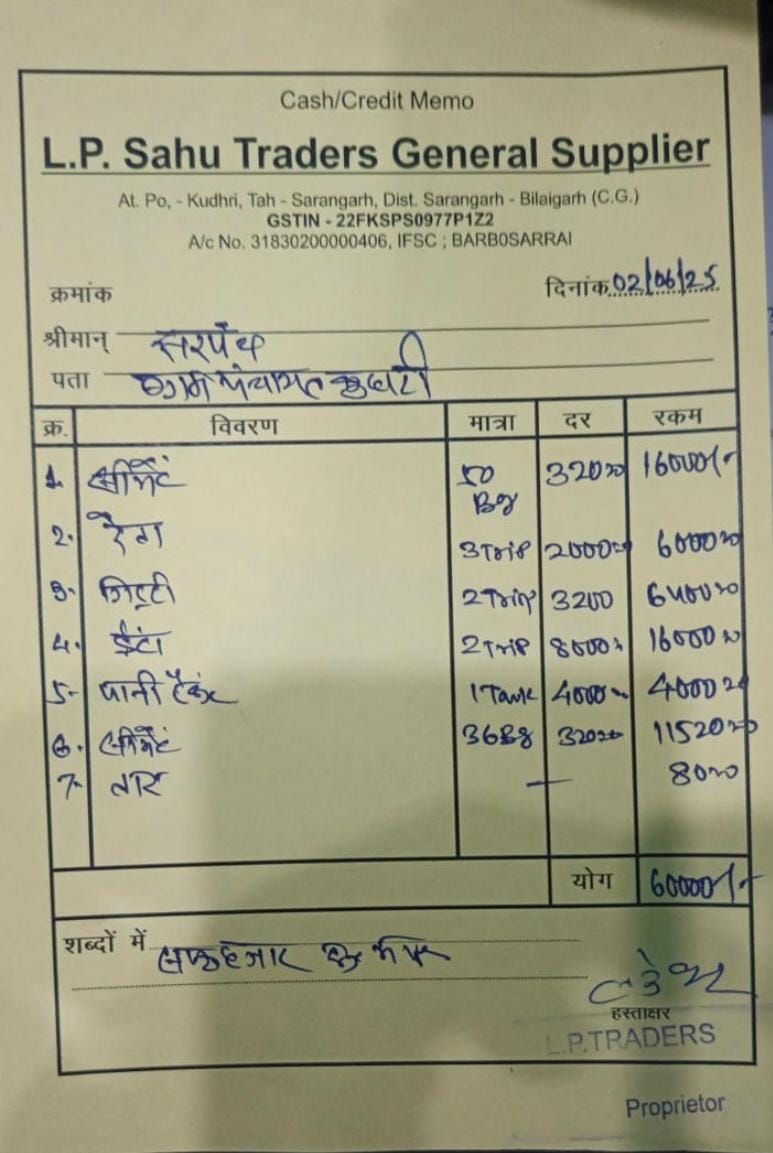 Cash/Credit Memo
L.P. Sahu Traders General Supplier
At. Po, - Kudhri, Tah - Sarangarh, Dist. Sarangarh - Bilaigarh (C.G.)
GSTIN - 22FKSPS0977P1Z2
A/c No. 31830200000406, IFSC ; BARB0SARRAI
क्रमांक दिनांक 02/06/25
श्रीमान् सरपंच
पता ग्राम पंचायत कुधरी
क्र. विवरण मात्रा दर रकम
1. सीमेंट 50 Bg 320=00 16000/-
2. रेत 3 Trip 2000=00 6000=00
3. गिट्टी 2 Trip 3200 6400=00
4. ईंटा 2 Trip 8000=00 16000=00
5- पानी टैंकर 1 Tank 4000=00 4000=00
6. सीमेंट 36 Bg 320=00 11520=00
7- तार — 80=00
योग 60000/-
शब्दों में
हस्ताक्षर
L.P.TRADERS
Proprietor